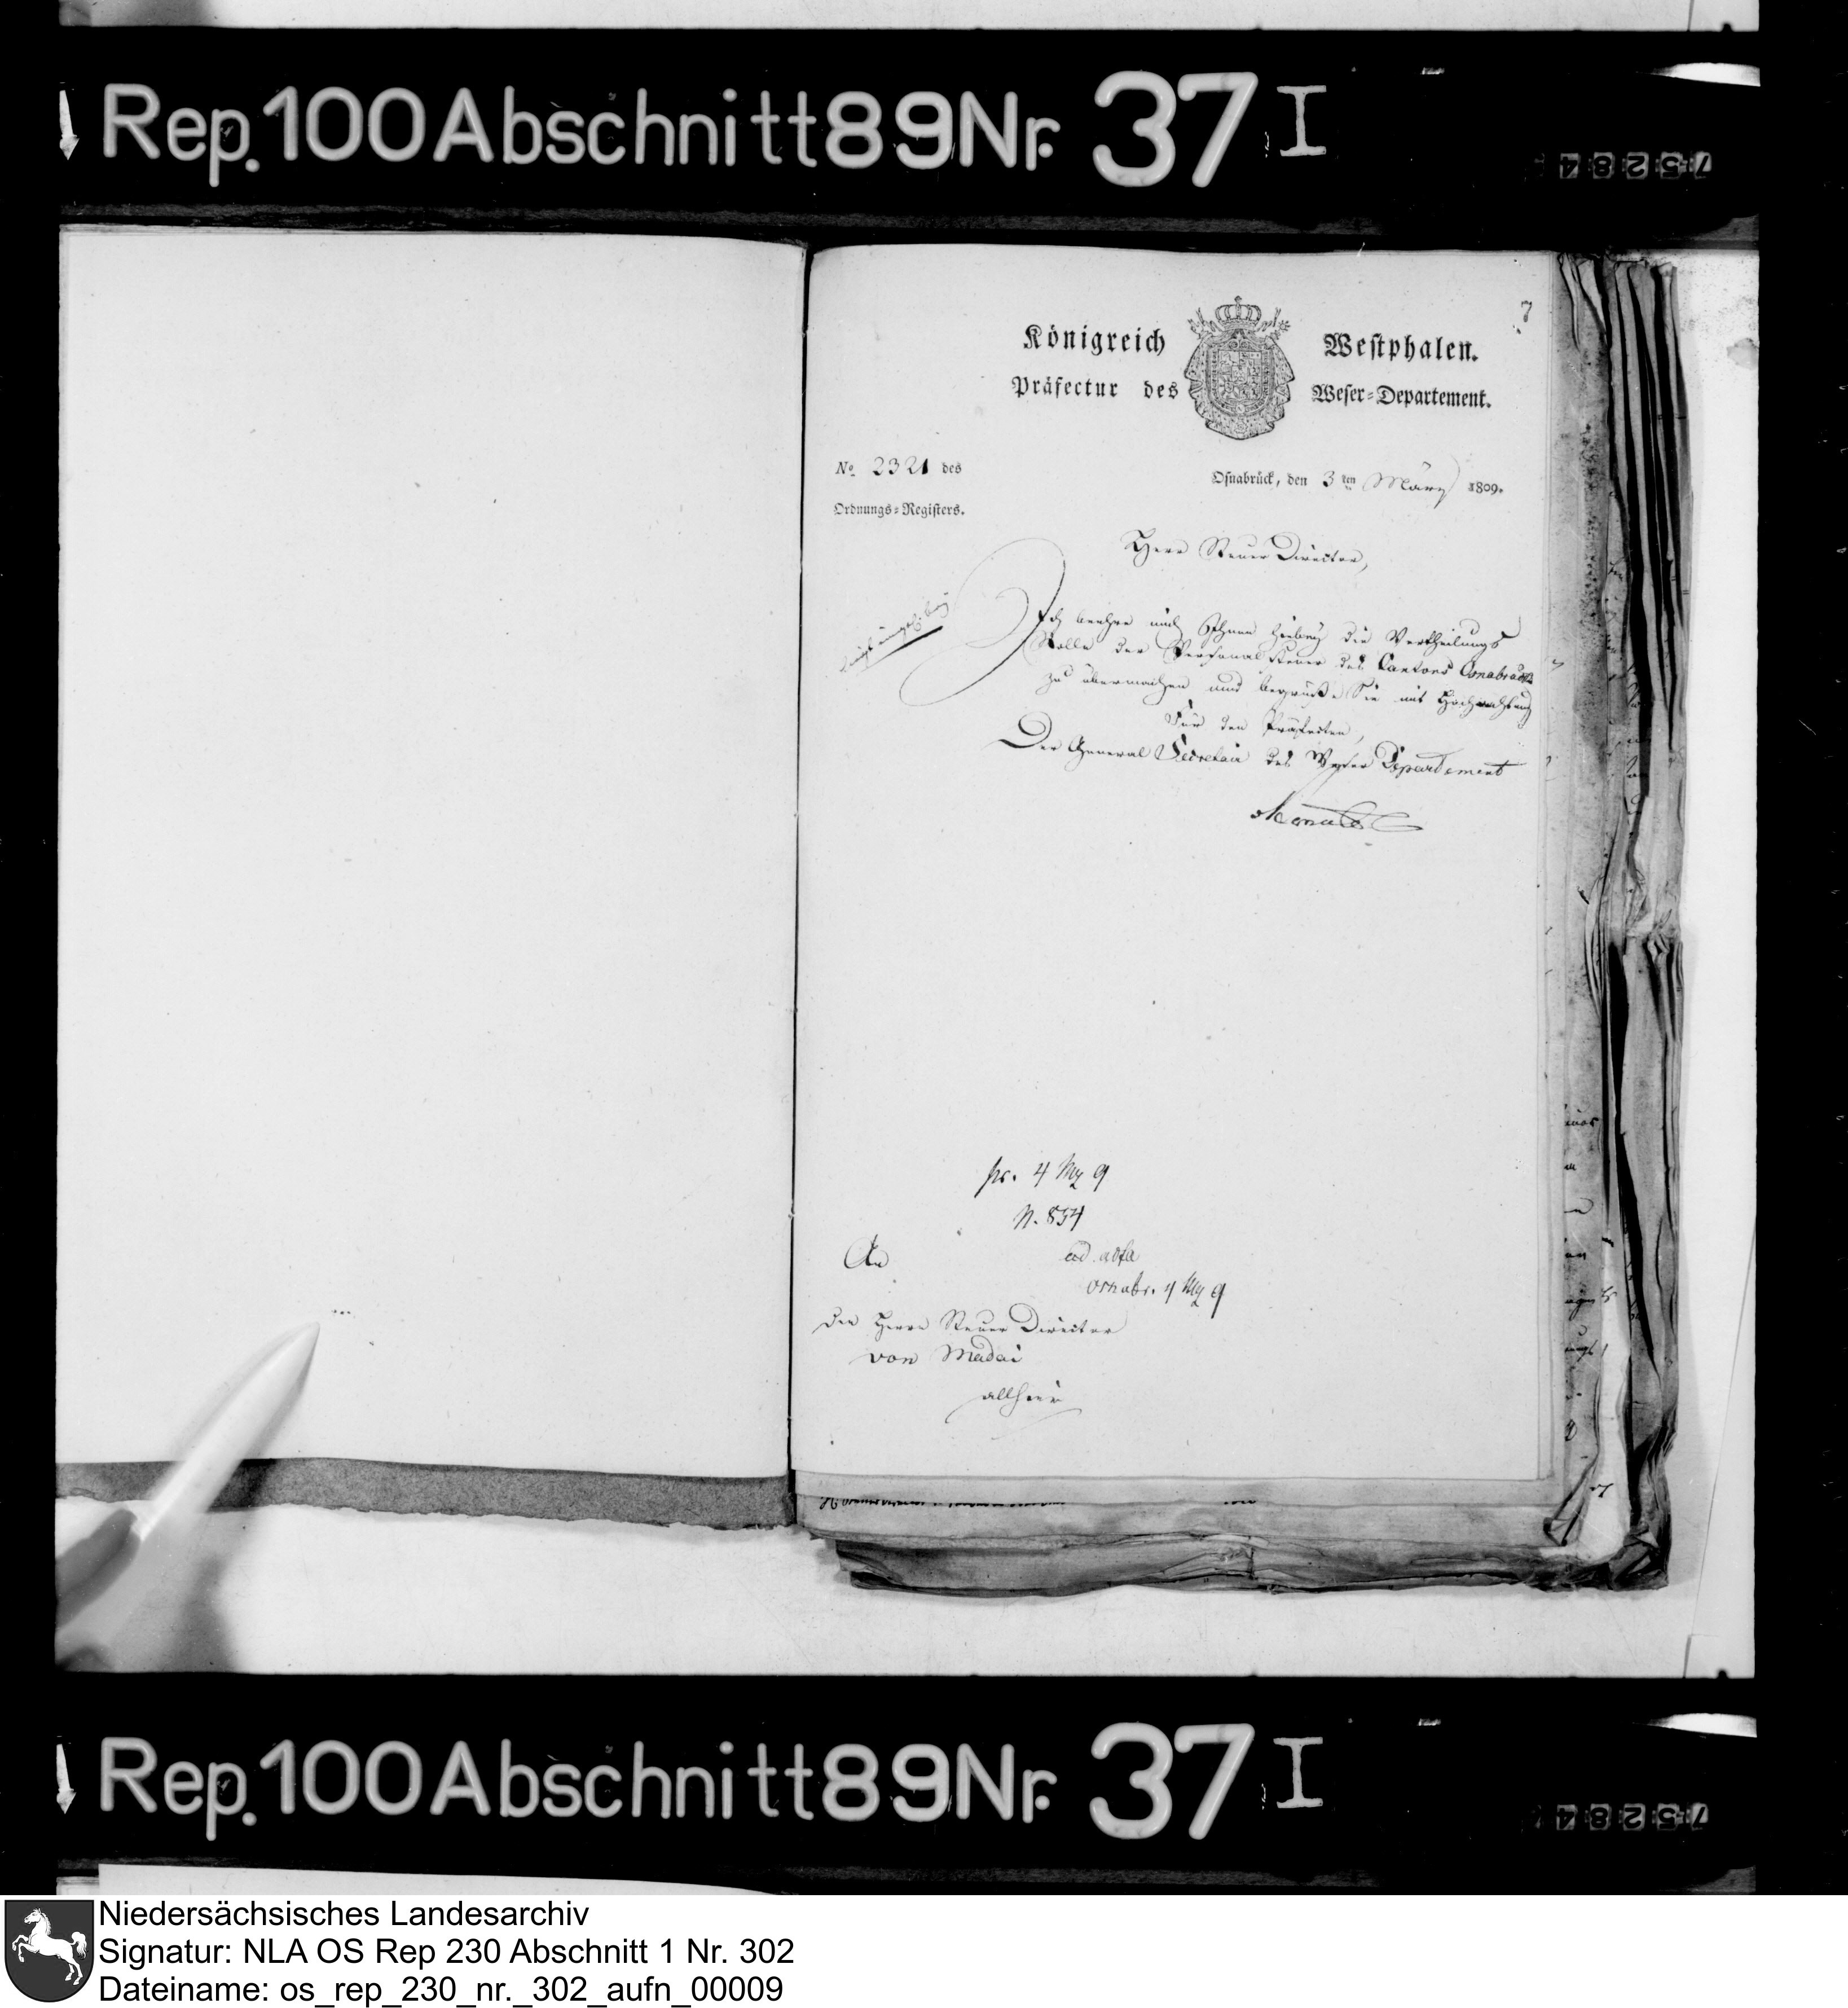 Rep. 100 Abschnitt 89 Nr. 37 I
75284
7
Königreich Westphalen.
Präfectur des Weser=Departement.
No 2321 des
Ordnungs=Registers.
Osnabrück, den 3ten März 1809.
Herr Steuer Director,
Ich beehre mich Ihnen hiebey die Vertheilungs
Rolle der Personal Steuer des Cantons Osnabrück
zu übermachen und begrüße Sie mit Hochachtung
Für den Präfecten,
Der General Secretair des Weser Departement
pr. 4 Mz 9
N. 854
ad acta
Osnabr. 4 Mz 9
An
den Herrn Steuer Director
von Madai
allhier
Rep. 100 Abschnitt 89 Nr. 37 I
75284
Niedersächsisches Landesarchiv
Signatur: NLA OS Rep 230 Abschnitt 1 Nr. 302
Dateiname: os_rep_230_nr._302_aufn_00009